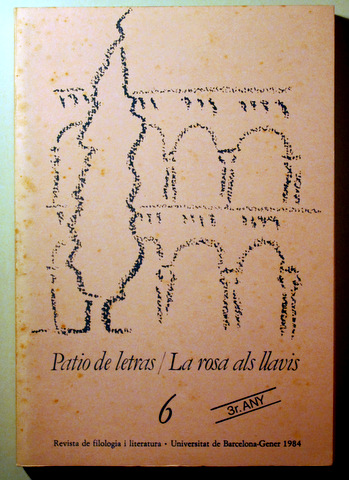 Patio de letras / La rosa als llavis
6
3r. ANY
Revista de filologia i literatura - Universitat de Barcelona-Gener 1984